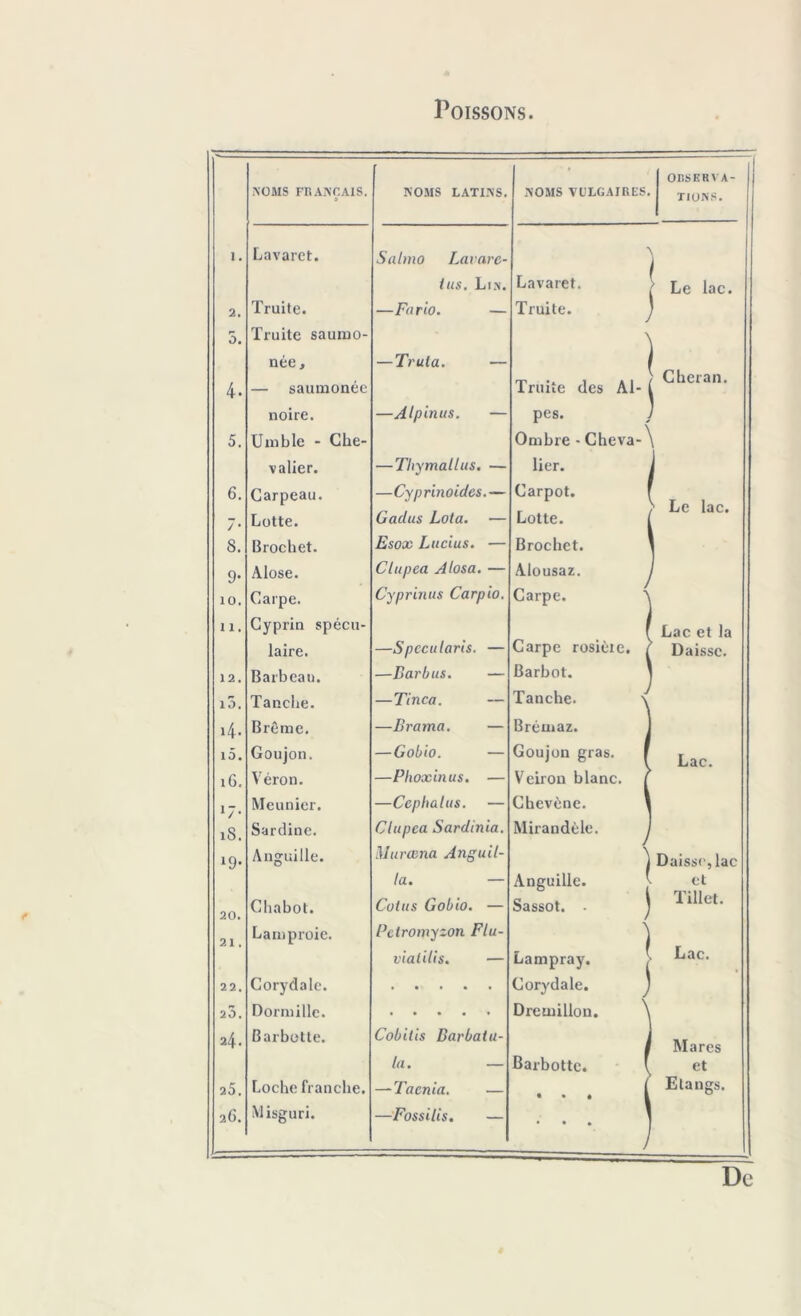 Poissons.
NOMS FRANÇAIS. NOMS LATINS. NOMS VULGAIRES. OBSERVA-
TIONS.
1. Lavaret. Salmo Lavare-
tus. Lin. Lavaret. Le lac.
2. Truite. —Fario. — Truite.
3. Truite saumo-
née, —Truta. —
4. — saumonée Truite des Al- Cheran.
noire. —Alpinus. — pes.
5. Umble - Che- Ombre - Cheva-
valier. —Thymallus. — lier.
6. Carpeau. —Cyprinoides.— Carpot.
7. Lotte. Gadus Lota. — Lotte. Le lac.
8. Brochet. Esox Lucius. — Brochet.
9. Alose. Clupea Alosa. — Alousaz.
10. Carpe. Cyprinus Carpio. Carpe.
11. Cyprin spécu- Lac et la
laire. —Specularis. — Carpe rosière. Daisse.
12. Barbeau. —Barbus. — Barbot.
13. Tanche. —Tinca. — Tanche.
14. Brême. —Brama. — Brémaz.
15. Goujon. —Gobio. — Goujon gras. Lac.
16. Véron. —Phoxinus. — Veiron blanc.
17. Meunier. —Cephalus. — Chevène.
18. Sardine. Clupea Sardinia. Mirandèle.
19. Anguille. Muræna Anguil- Daisse, lac
la. — Anguille. et
20. Chabot. Cotus Gobio. — Sassot. Tillet.
21. Lamproie. Petromyzon Flu-
viatilis. — Lampray. Lac.
22. Corydale. . . . . . Corydale.
23. Dormille. . . . . . Dremillon.
24. Barbotte. Cobitis Barbatu- Mares
la. — Barbotte. et
25. Loche franche. —Taenia. — . . . Etangs.
26. Misguri. —Fossilis. — . . .
De